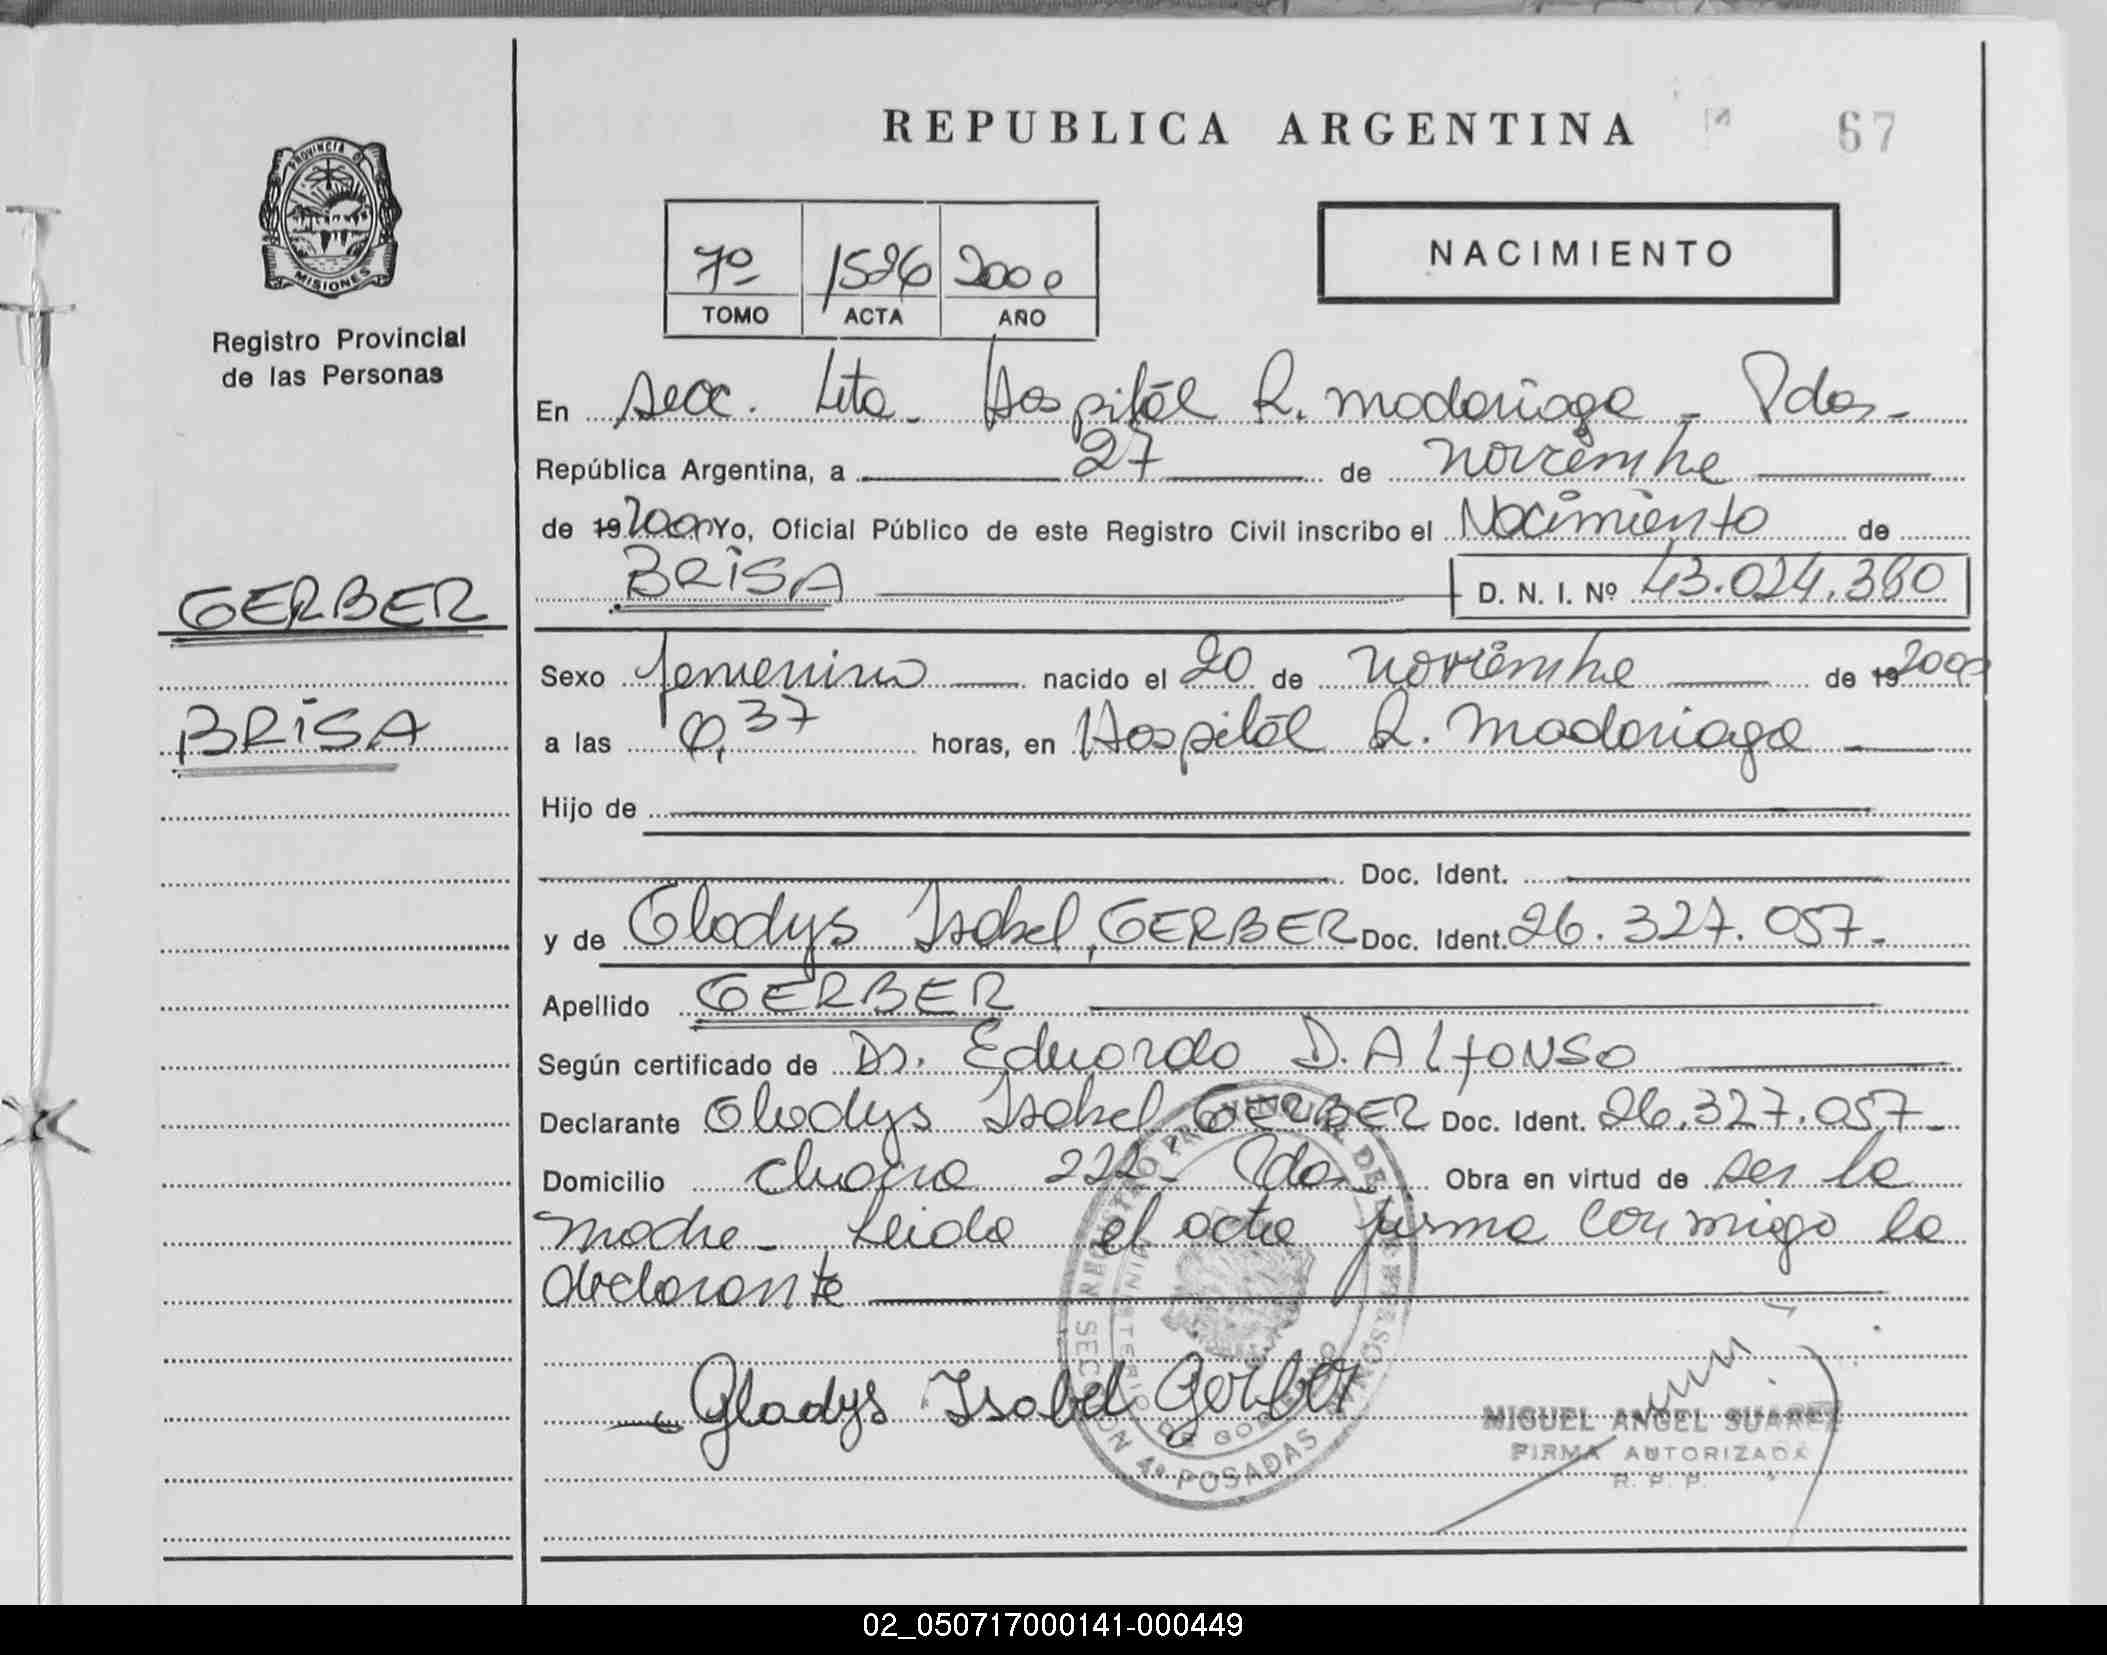 REPUBLICA ARGENTINA
67
PROVINCIA DE
MISIONES
Registro Provincial
de las Personas
7º 1526 2000
TOMO ACTA AÑO
NACIMIENTO
En Secc. 4ta. Hospital R. Madariaga - Pdas -
República Argentina, a 27 de noviembre
de 19 2000 Yo, Oficial Público de este Registro Civil inscribo el Nacimiento de
BRISA D. N. I. Nº 43.024.380
GERBER
BRISA
Sexo femenino nacido el 20 de noviembre de 19 2000
a las 0,37 horas, en Hospital R. Madariaga
Hijo de
Doc. Ident.
y de Gladys Isabel, GERBER Doc. Ident. 26.327.057.-
Apellido GERBER
Según certificado de Dr. Eduardo D. ALfONSO
Declarante Gladys Isabel GERBER Doc. Ident. 26.327.057.-
Domicilio chacra 222 - Pdas - Obra en virtud de ser la
madre - Leida el acta firma conmigo la
declarante
Gladys Isabel Gerber
REGISTRO PROVINCIAL DE LAS PERSONAS
MINISTERIO DE GOBIERNO
SECCION 4º POSADAS
MIGUEL ANGEL SUAREZ
FIRMA AUTORIZADA
R. P. P.
02_050717000141-000449